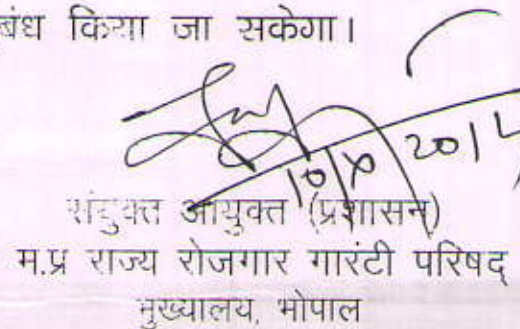 बंध किया जा सकेगा।
10/10/2014
संयुक्त आयुक्त (प्रशासन)
म.प्र राज्य रोजगार गारंटी परिषद
मुख्यालय, भोपाल